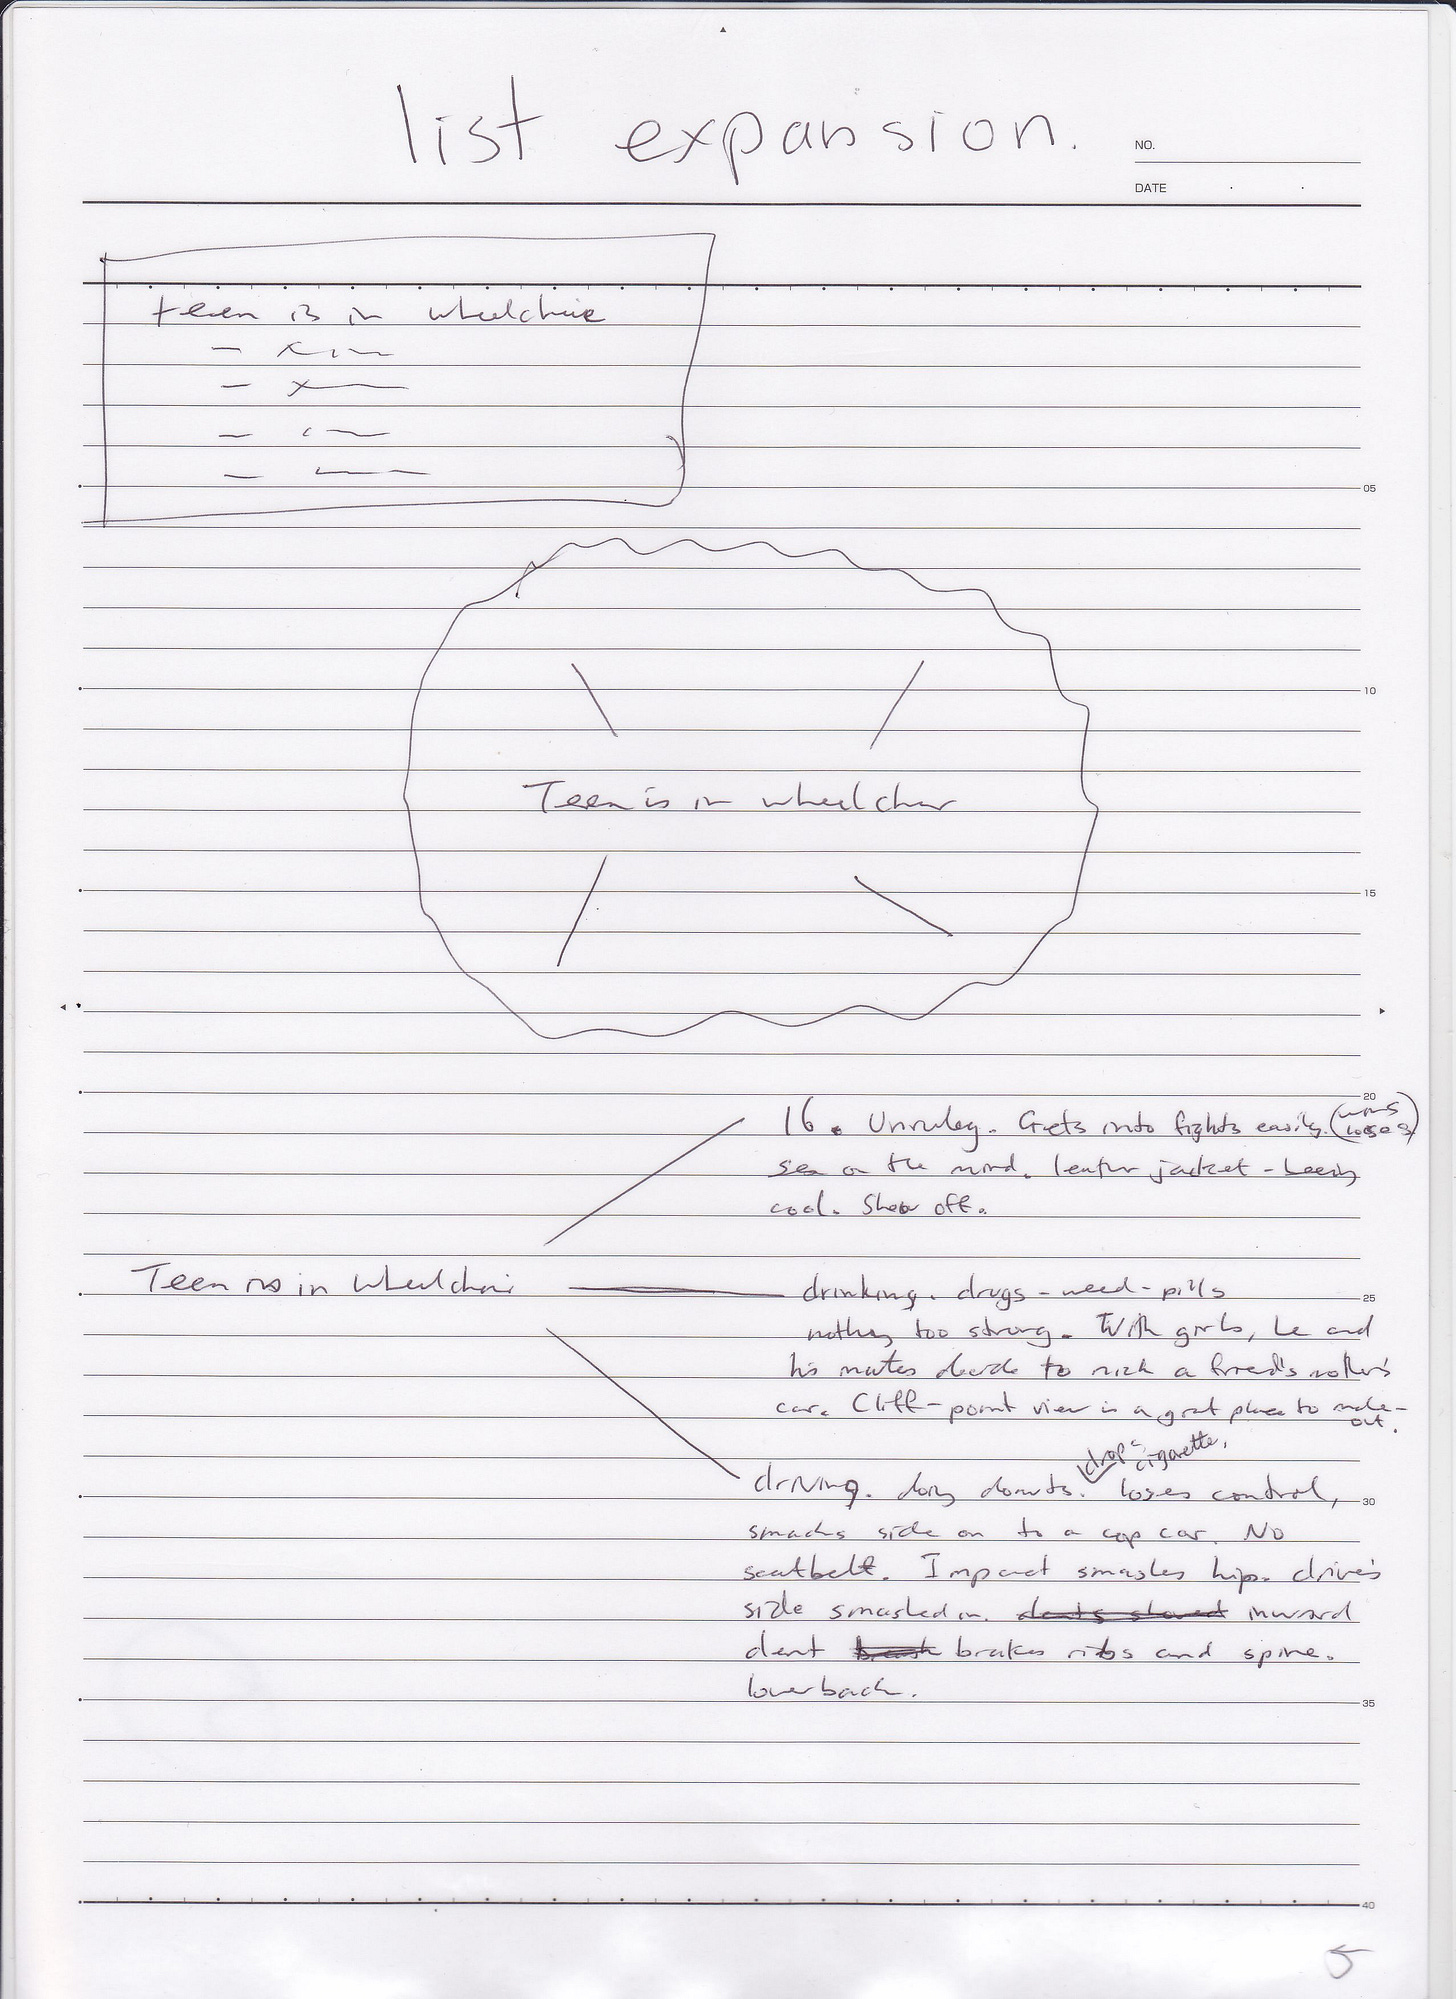 list expansion.
NO.
DATE
teen is in wheelchair
05
10
Teen is in wheelchair
15
20
16. Unruley. Gets into fights easily. (wins loses)
sex on the mind. leather jacket - being
cool. Show off.
Teen is in wheelchair
drinking. drugs - weed - pills
25
nothing too strong. With girls, he and
his mates decide to nick a friend's mother's
car. Cliff-point view is a great place to make-
out.
drops cigarette.
driving. doing donuts. loses control,
30
smacks side on to a cop car. No
seatbelt. Impact smashes hip. driver's
side smashed in. inward
dent brakes ribs and spine.
lower back.
35
40
5